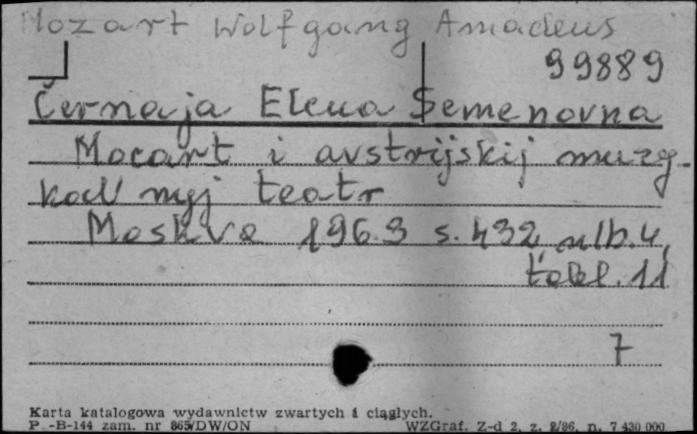 Mozart Wolfgang Amadeus
99889
Černaja Elena Semenovna
Mocart i avstrijskij muzy-
kal'nyj teatr
Moskva 1963 s. 432, nlb. 4,
tabl. 11
7
Karta katalogowa wydawnictw zwartych i ciągłych.
P.-B-144 zam. nr 865/DW/ON WZGraf. Z-d 2, z. 2/86, n. 7 430 000